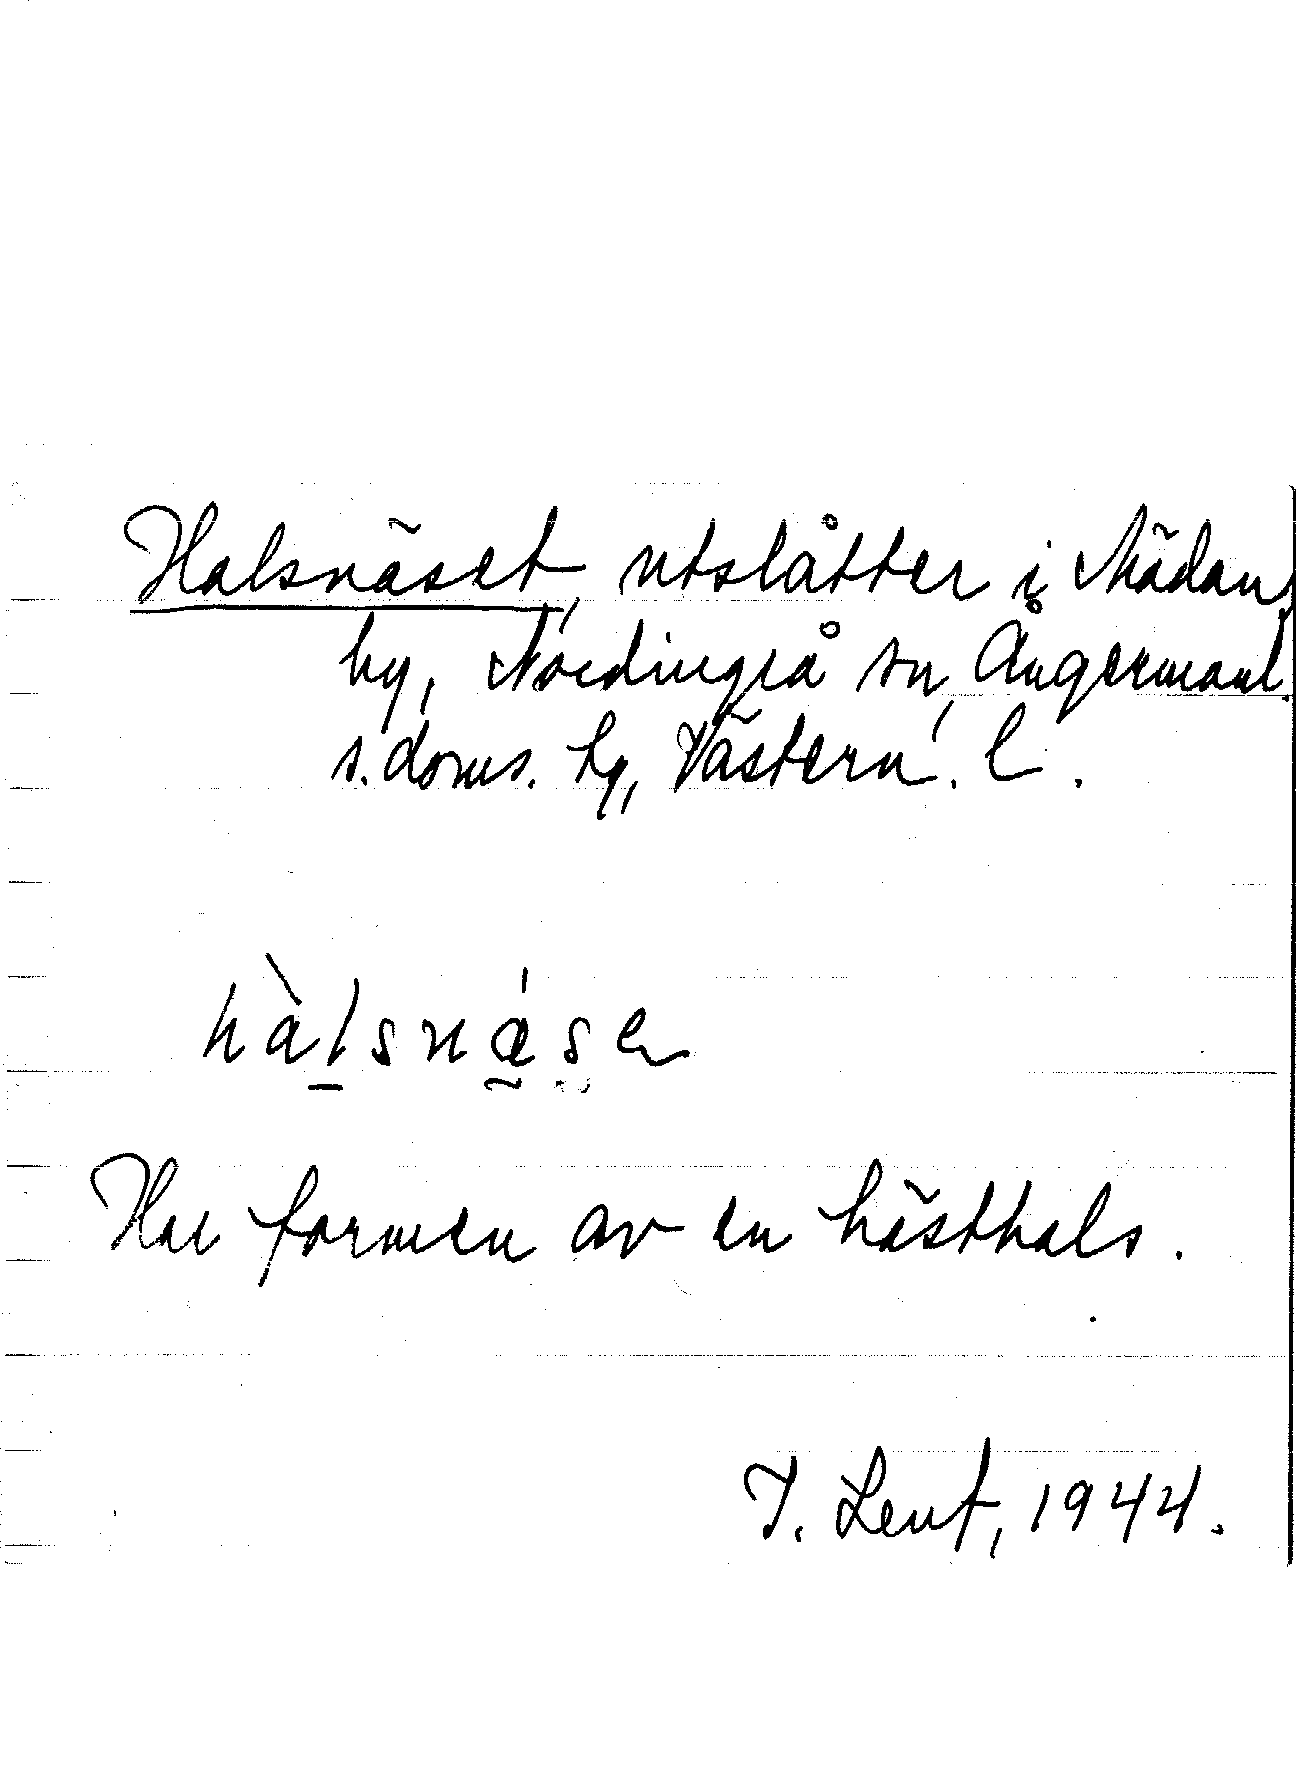 Halsnäset, utslåtter i Mädan,
by, Nordingrå sn, Ångermanl.
s. doms. hg, Västern. l.
hàlsnǽse
Har formen av en hästhals.
J. Lent, 1944.